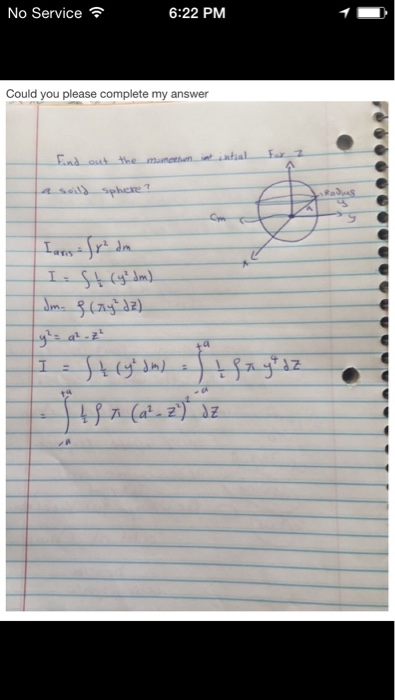 No Service 6:22 PM
Could you please complete my answer
Find out the momentum int intial For Z
a soild sphere?
Radius
y
a
Cm
y
x
I axis = ∫r² dm
I = ∫½ (y² dm)
dm = ρ(πy² dz)
y² = a² - z²
I = ∫½ (y² dm) = ∫₋ₐ⁺ᵃ ½ ρπ y⁴ dz
= ∫₋ₐ⁺ᵃ ½ ρ π (a² - z²)² dz